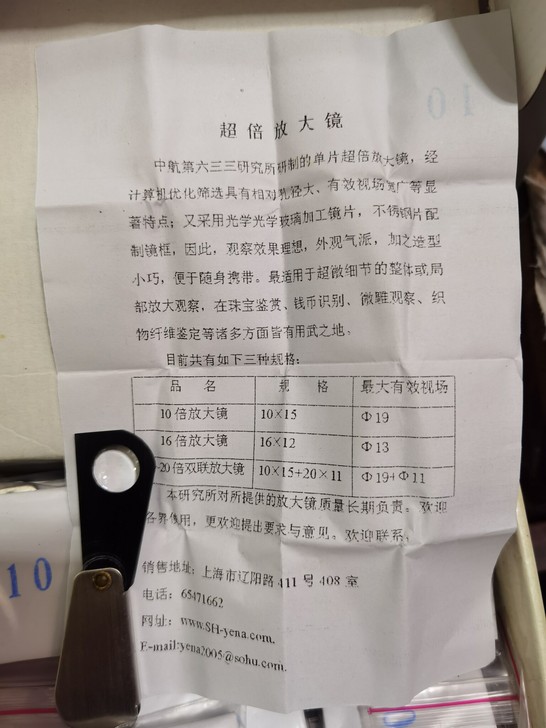 10
超倍放大镜
中航第六三三研究所研制的单片超倍放大镜，经
计算机优化筛选具有相对孔径大、有效视场宽广等显
著特点；又采用光学光学玻璃加工镜片，不锈钢片配
制镜框，因此，观察效果理想，外观气派，加之造型
小巧，便于随身携带。最适用于超微细节的整体或局
部放大观察，在珠宝鉴赏、钱币识别、微雕观察、织
物纤维鉴定等诸多方面皆有用武之地。
目前共有如下三种规格：
品 名 规 格 最大有效视场
10倍放大镜 10×15 Φ19
16倍放大镜 16×12 Φ13
-20倍双联放大镜 10×15+20×11 Φ19+Φ11
本研究所对所提供的放大镜质量长期负责。欢迎
各界使用，更欢迎提出要求与意见。欢迎联系：
销售地址：上海市辽阳路411号408室
电话：65471662
网址：www.SH-yena.com.
E-mail:yena2005@sohu.com.
10